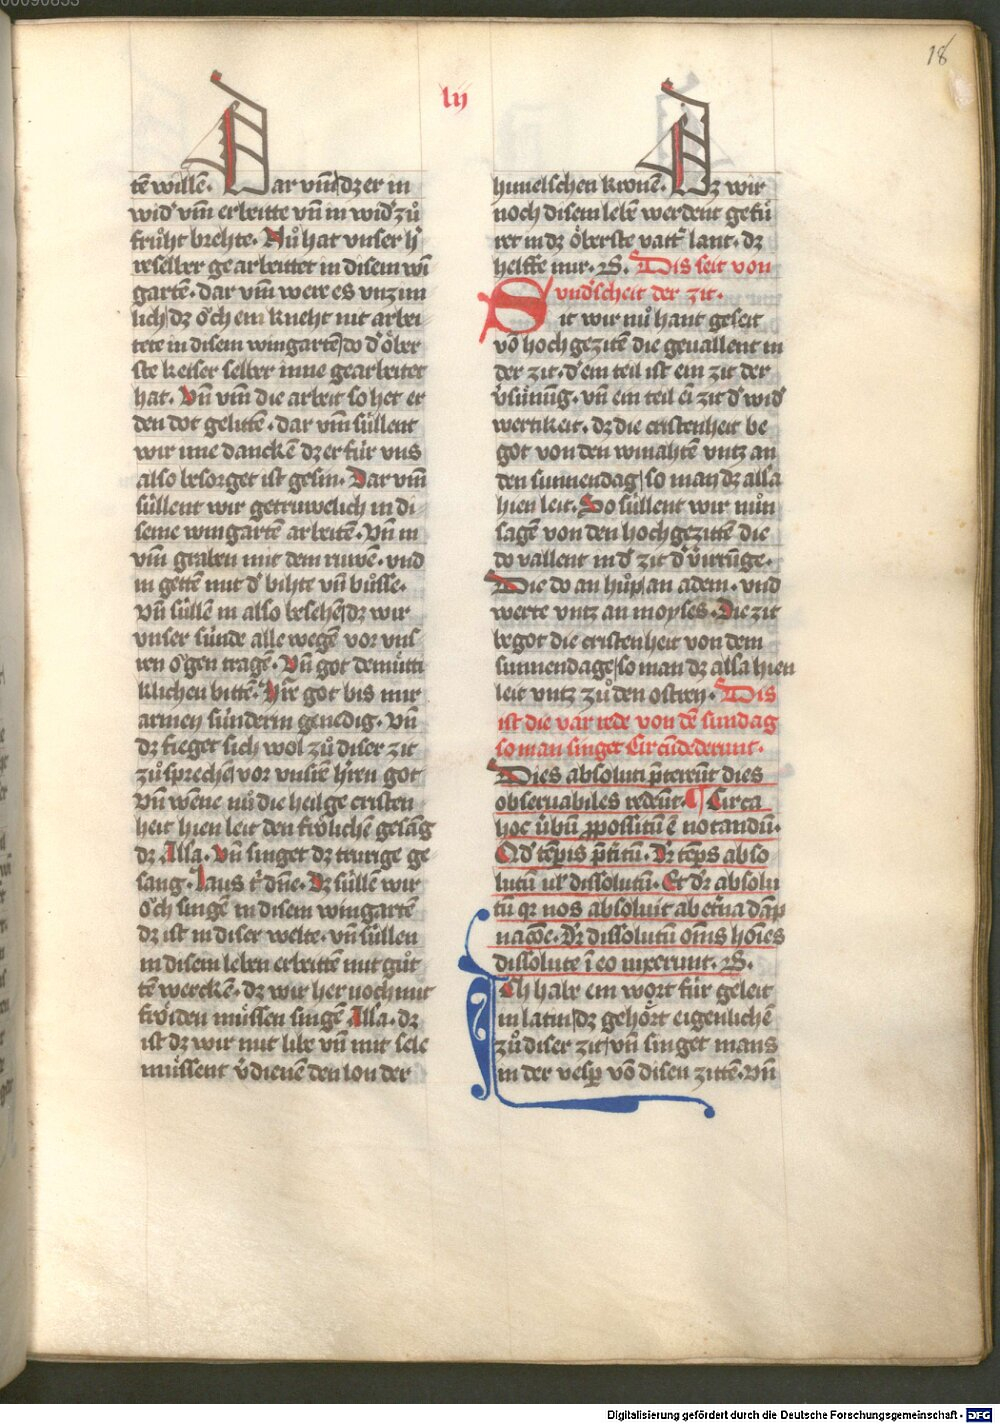 00090853
18
lij
tē willē. Dar vm̄ dz er in
wid' vm̄ erbeitte vn̄ in wid' zů
frůht brehte. Nů hat vnser h'
re selber gearbeittet in disem wī
gartē. dar vm̄ were es vnzim
lich dz öch ein kneht nit arbei
tete in disem wingartē do d' öber
ste keiser selber inne gearbeitet
hat. Vn̄ vm̄ die arbeit so het er
den dot gelittē. dar vm̄ süllent
wir ime danckē dz er für vns
also besorget ist gesin. Dar vm̄
süllent wir getruwelich in di
seme wingartē arbeitē. Vn̄ in
vm̄ graben mit dem ruwē. vnd
in gettē mit d' bihte vn̄ bůsse.
Vn̄ süllē in also besehē dz wir
vnser sünde alle wegē vor vns
ren ögen tragē. Vn̄ got demütti
klichen bittē. H're got bis mir
armen sünderin genedig. Vn̄
dz fieget sich wol zů diser zit
zů sprechē vor vnsrē h'ren got
Vn̄ wēne nů die heilge cristen
heit hien leit den frölichē gesāg
dz Alla. Vn̄ singet dz trurige ge
sang. Laus t' dn̄e. Dz süllē wir
öch singē in disem wingartē
dz ist in diser welte. vn̄ süllen
in disem leben erbeitē mit gůt
tē werckē. dz wir her noch mit
fröiden müssen singē Alla. dz
ist dz wir mit libe vn̄ mit sele
müssent v'dienē den lon der
himelschen kronē. Dz wir
noch disem lebē werdent gefü
ret in dz öberste vatt' lant. dz
helffe mir. B. Dis seit von
vnd'scheit der zit.
Sit wir nů hant geseit
vō hochgezitē die geuallent in
der zit. d' ein teil ist ein zit der
v'sünūg. vn̄ ein teil ei zit d' wid'
wertikeit. dz die cristenheit be
got von den winahtē vntz an
den sunnendag so man dz alla
hien leit. So süllent wir nůn
sagē von den hochgezitē die
do vallent in d' zit d' v'irrūge.
Die do an hůp an adem. vnd
werte vntz an moyses. Die zit
begot die cristenheit von dem
sunnendage so man dz alla hien
leit vntz zů den ostren. Dis
ist die vor rede von dē sundag
so man singet Circūdederunt.
Dies absoluti p̄tereūt dies
obseruabiles redeūt. ¶ Circa
hoc v'bū ꝓpossitū ē notandū.
Qd' tēpis p̄t'itū. Dr tēps abso
lutū ul' dissolutū. Et d'r absolu
tū qz nos absoluit ab et'na dāp
nacōe. D'r dissolutū om̄s hōies
dissolute ī eo vixerunt. B.
Ich habe ein wort für geleit
in latin dz gehört eigenlichē
zů diser zit vn̄ singet mans
in der vesp' vō disen zittē. Vn̄
Digitalisierung gefördert durch die Deutsche Forschungsgemeinschaft - DFG